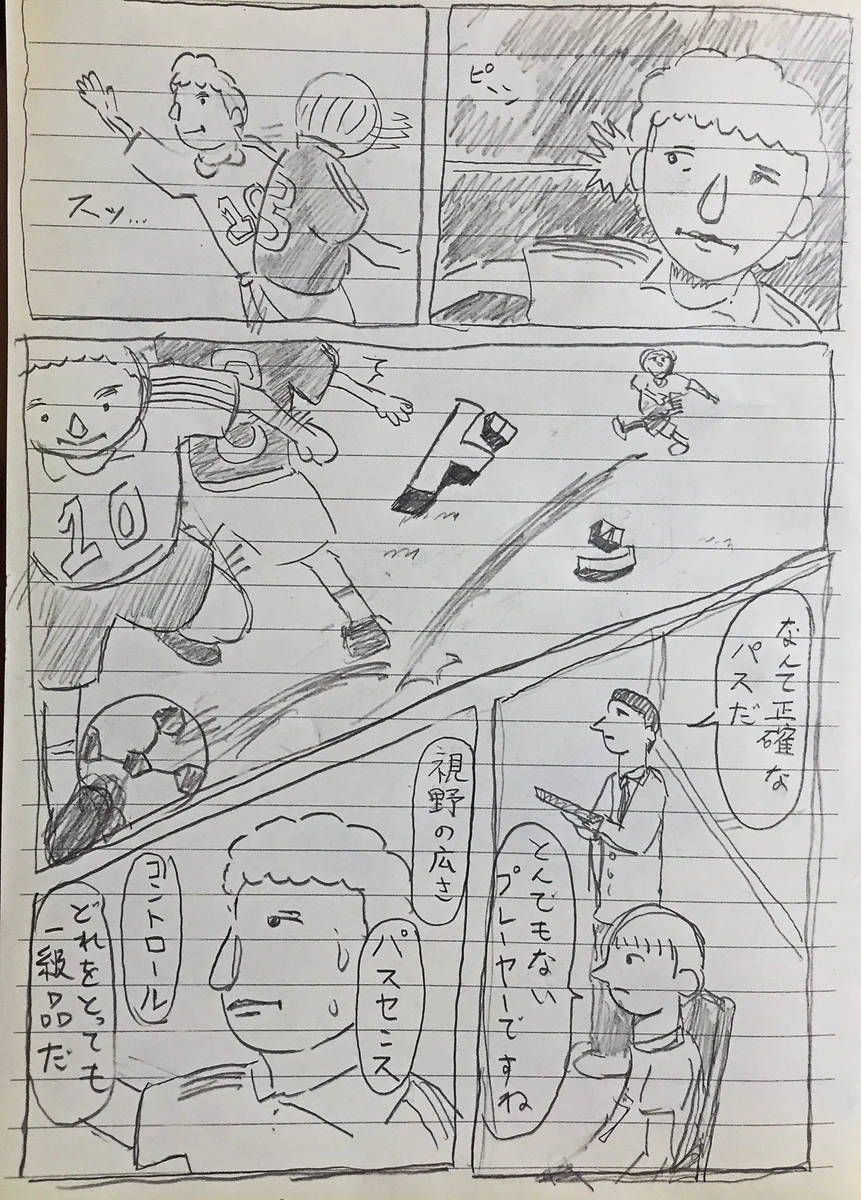 ピーン
スッ…
15
10
なんて正確な
パスだ
とんでもない
プレーヤーですね
視野の広さ
パスセンス
コントロール
どれをとっても
一級品だ